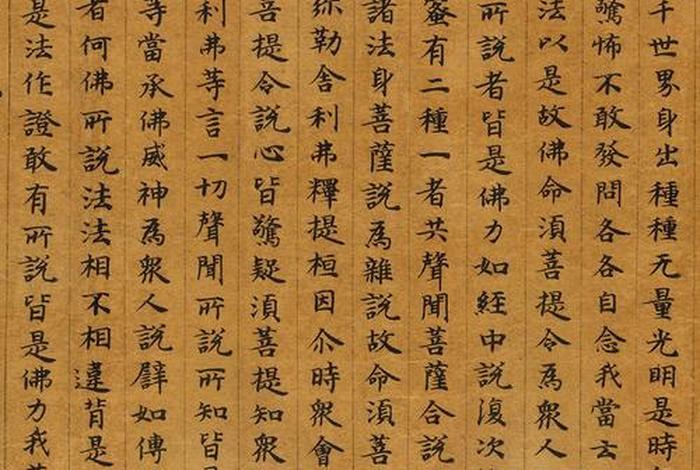 千世界身出種種无量光明是時
驚怖不敢發問各各自念我當云
法以是故佛命湏菩提令為衆人
所說者皆是佛力如經中說復次
蜜有二種一者共聲聞菩薩合說
諸法身菩薩說為雜說故命湏菩
弥勒舍利弗釋提桓因尒時衆會
菩提令說心皆驚疑湏菩提知衆
利弗等言一切聲聞所說所知皆
等當承佛威神為衆人說譬如傳
者何佛所說法法相不相違背是
是法作證敢有所說皆是佛力我